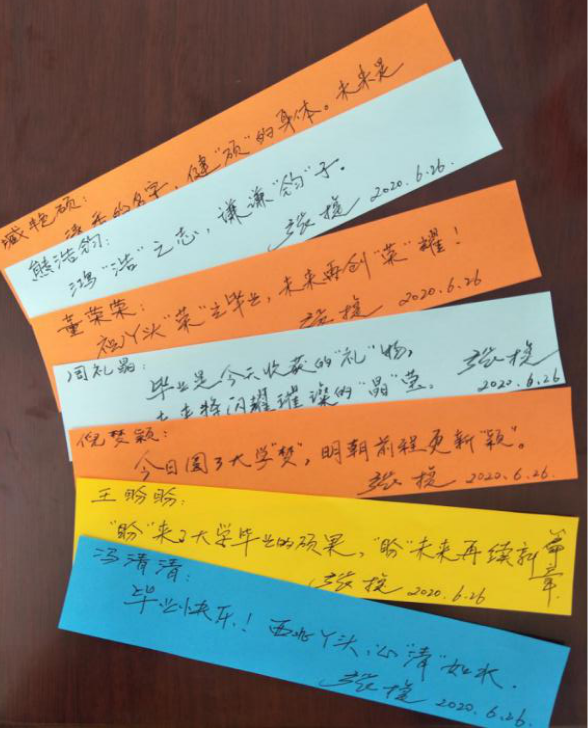 臧艳硕:
的名字,健“硕”的身体。未来是
熊浩钧:
鸿“浩”之志,谦谦“钧”子。
张捷 2020.6.26.
董荣荣:
祝丫头“荣”之毕业,未来再创“荣”耀!
张捷 2020.6.26
闫礼晶:
毕业是今天收获的“礼”物,
未来将闪耀璀璨的“晶”莹。
张捷
2020.6.26
倪梦颖:
今日圆了大学“梦”,明朝前程更新“颖”。
张捷 2020.6.26.
王盼盼:
“盼”来了大学毕业的硕果,“盼”未来再续新篇章.
张捷 2020.6.26
冯清清:
毕业快乐!西北丫头,心“清”如水.
张捷 2020.6.26.